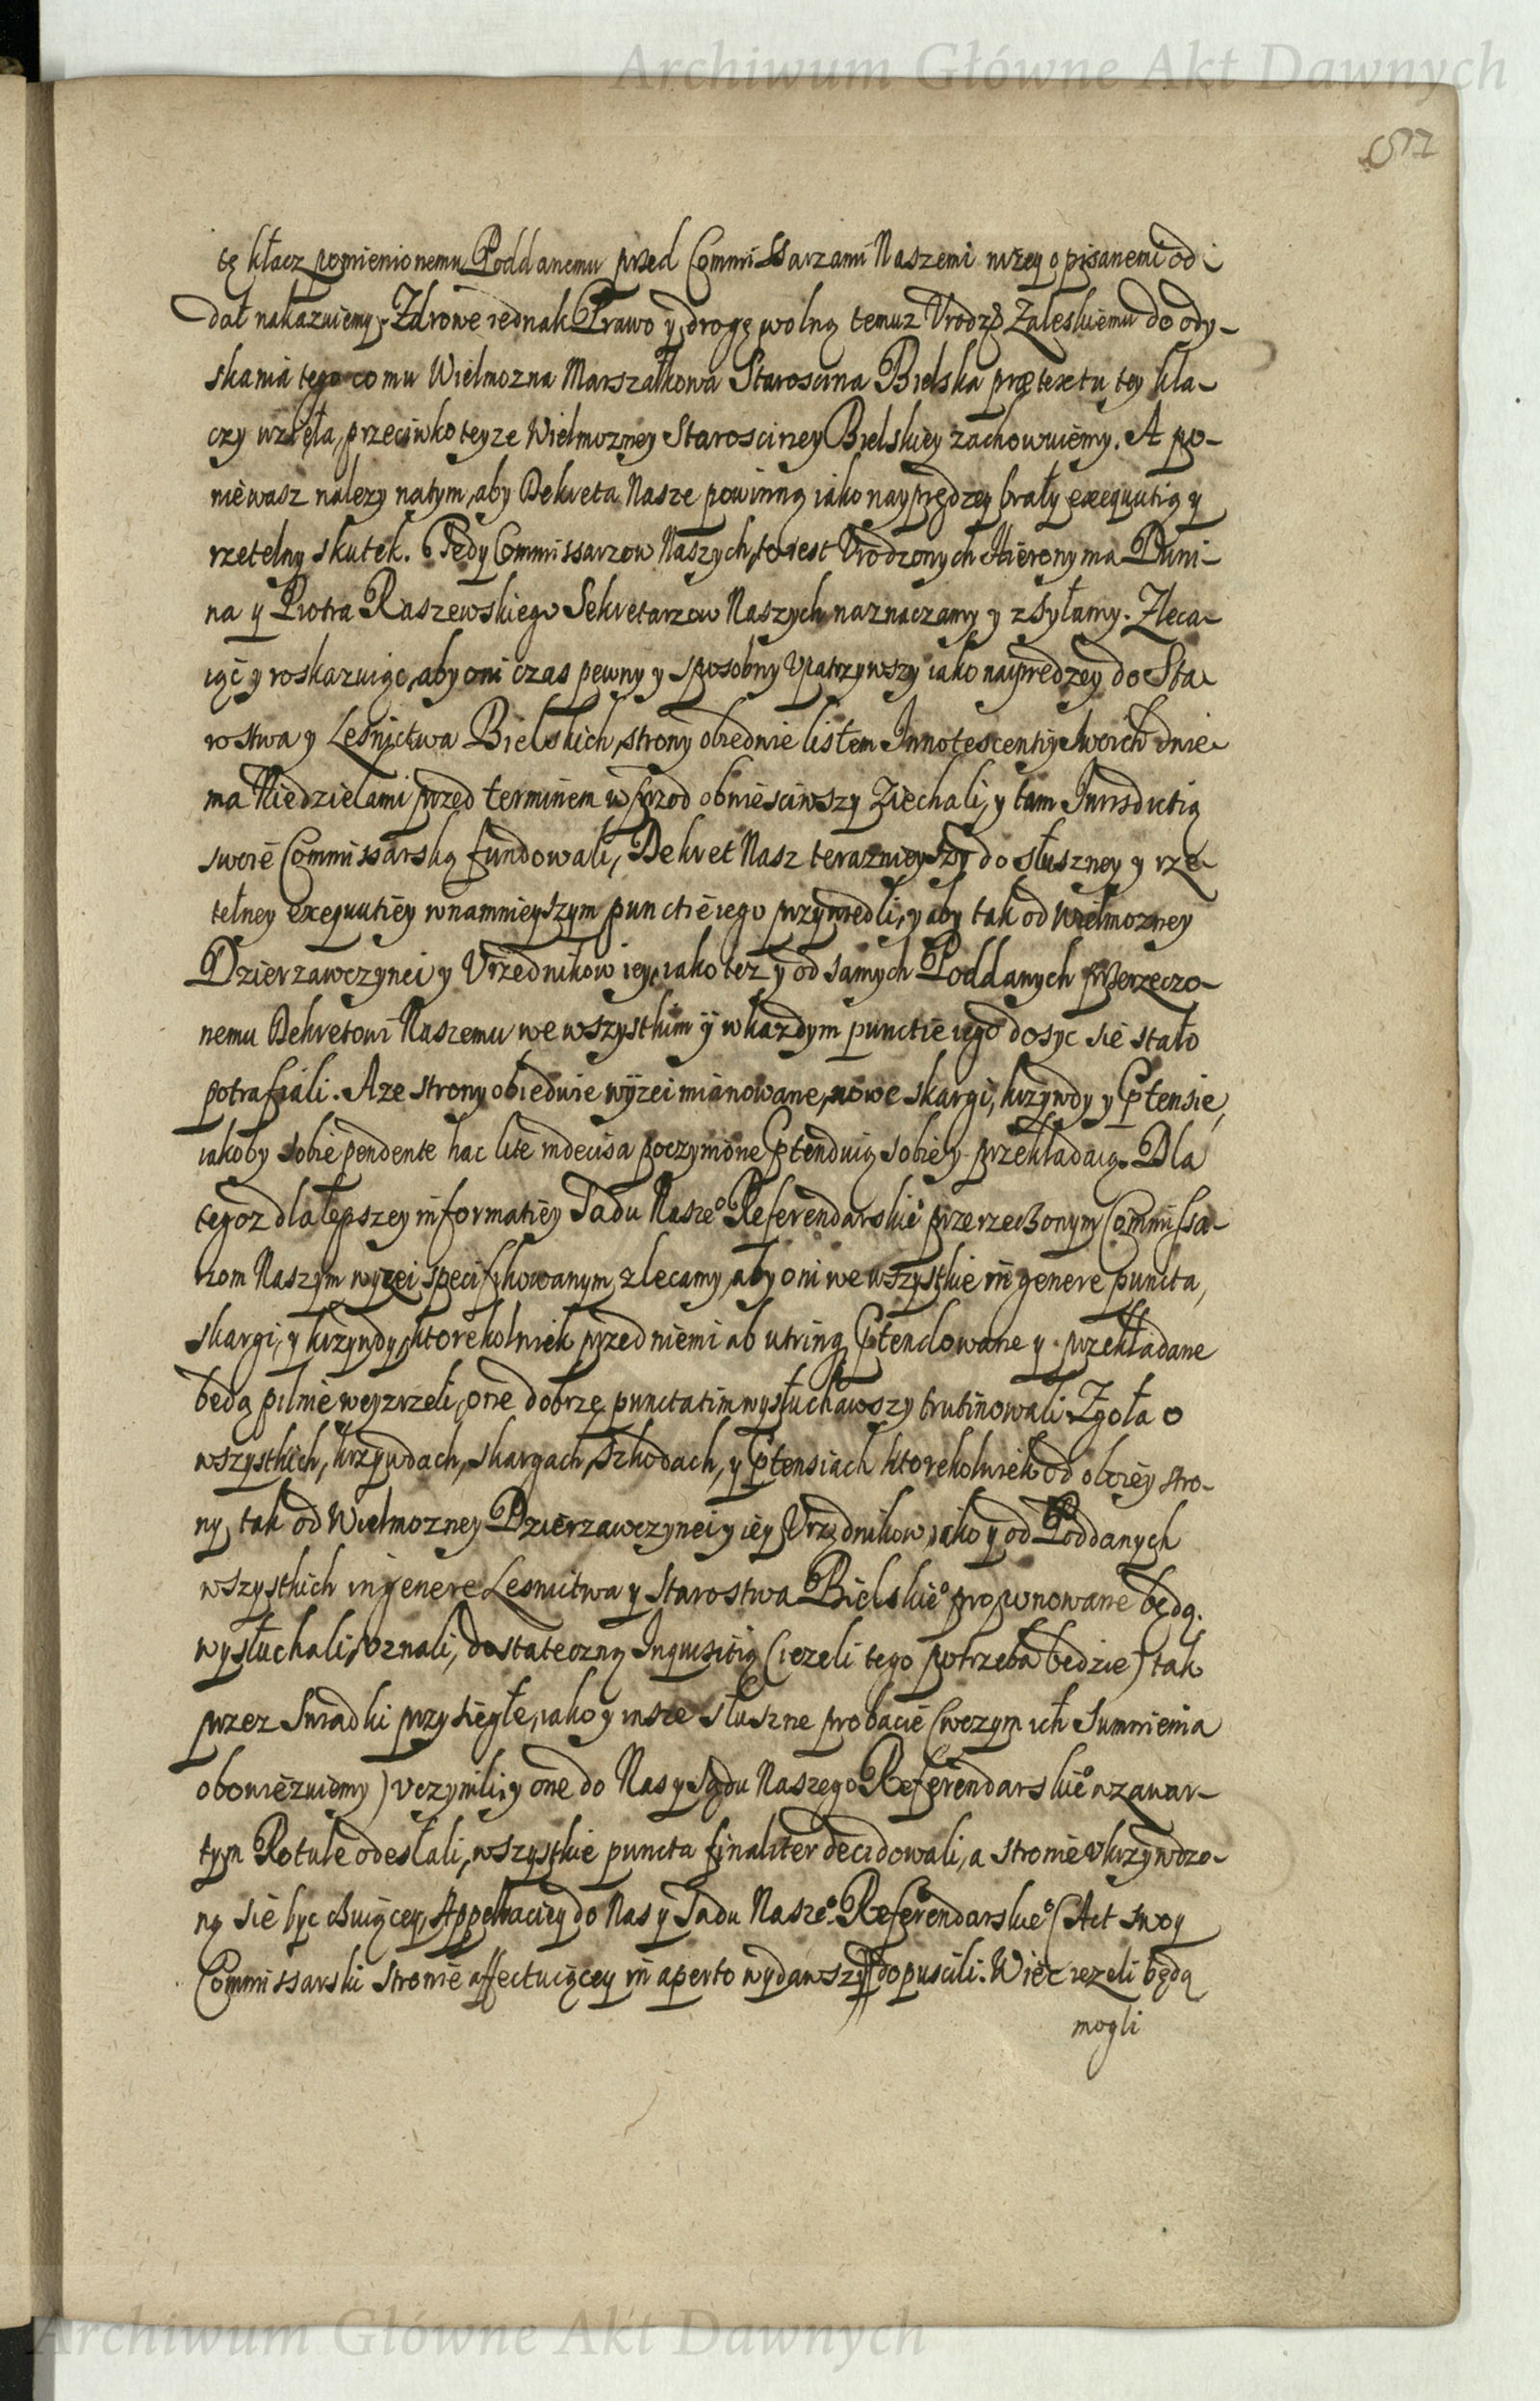 Archiwum Główne Akt Dawnych
tę kłacz pomienionemu Poddanemu przed Commissarzami Naszemi niżey opisanemi od
dał nakazuiemy. Zdrowe iednak Prawo y drogę wolną temuz Vrodz. Zaleskiemu do ody-
skania tego co mu Wielmozna Marszałkowa Staroscina Bielska prætextu tey kła-
czy wzięła, przeciwko teyze Wielmozney Starosciney Bielskiey zachowuiemy. A po-
niewasz nalezy natym, aby Dekreta Nasze powinną iako nayprędzey brały exequutią y
rzetelny skutek. Tedy Commissarzow Naszych, to iest Vrodzonych Hieronyma Duni-
na y Piotra Raszewskiego Sekretarzow Naszych naznaczamy y zsyłamy. Zleca-
iąc y roskazuiąc, aby oni czas pewny y sposobny vpatrzywszy iako nayprędzey do Sta-
rostwa y Leśnictwa Bielskich, strony obiedwie listem Innotescentiy swoich dwie-
ma Niedzielami przed terminem wprzod obwiesciwszy ziechali, y tam Iurisdictią
swoię Commissarską fundowali, Dekret Nasz terazнieyszy do słuszney y rze-
telney exequutiey wnamnieyszym punctie iego przywiedli, y aby tak od Wielmozney
Dzierzawczynei y Vrzednikow iey, iako tez y od samych Poddanych przerzeczo-
nemu Dekretowi Naszemu we wszystkim y wkazdym punctie iego dosyc się stało
potrafiali. A ze strony obiedwie wyzei mianowane, nowe skargi, krzywdy y Ptensie,
iakoby sobie pendente hac lite indecisa poczynione Ptenduią sobie y przekładaią. Dla
tegoz dla lepszey informatiey Sądu Nasze° Referendarskie° przerzeczonym Commissa-
rzom Naszym wyzei specifikowanym zlecamy, aby oni we wszystkie in genere puncta,
skargi, y krzywdy, ktorekolwiek przed niemi ab utrinq Ptendowane y przekładane
będą pilnie weyzrzeli, one dobrze punctatim wysłuchawszy trutinowali. Zgoła o
wszystkich, krzywdach, skargach, szkodach, y Ptensiach ktorekolwiek od obiey stro-
ny, tak od Wielmozney Dzierzawczynei y iey Vrzędnikow, iako y od Poddanych
wszystkich in genere Lesnictwa y Starostwa Bielskie° proponowane będą.
wysłuchali, Vznali, dostateczną Inquisitią (iezeli tego potrzeba będzie) tak
przez Swiadki przysięgłe, iako y insze słuszne probacie (wczym ich Sumnienia
obowięzuiemy) vczynili, y one do Nas y Sądu Naszego Referendarskie° wzawar-
tym Rotule odesłali, wszystkie puncta finaliter decidowali, a stronie vkrzywdzo-
ną się byc czuiącey, Appellaciey do Nas y Sądu Nasze° Referendarskie° (Act swoy
Commissarski stronie affectuiącey in aperto wydawszy) dopuscili. Więc iezeli będą
mogli
Archiwum Główne Akt Dawnych